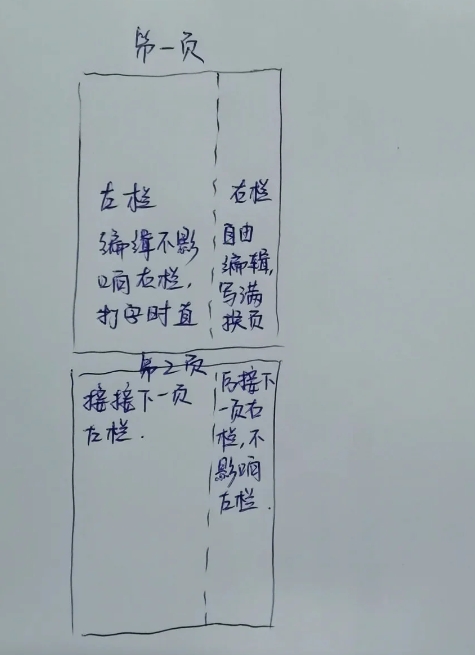 第一页
左栏
编缉不影
响右栏,
打字时直
右栏
自由
编辑,
写满
换页
第2页
接接下一页
左栏.
后接下
一页右
栏,不
影响
左栏.